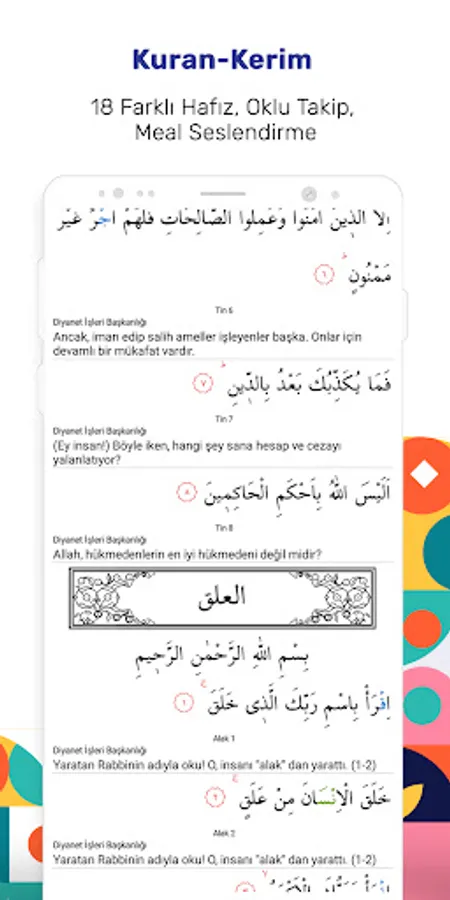 Kuran-Kerim
18 Farklı Hafız, Oklu Takip,
Meal Seslendirme
اِلَّا الَّذ۪ينَ اٰمَنُوا وَعَمِلُوا الصَّالِحَاتِ فَلَهُمْ اَجْرٌ غَيْرُ
مَمْنُونٍۜ ﴿٦﴾
Tin 6
Diyanet İşleri Başkanlığı
Ancak, iman edip salih ameller işleyenler başka. Onlar için
devamlı bir mükafat vardır.
فَمَا يُكَذِّبُكَ بَعْدُ بِالدّ۪ينِۜ ﴿٧﴾
Tin 7
Diyanet İşleri Başkanlığı
(Ey insan!) Böyle iken, hangi şey sana hesap ve cezayı
yalanlatıyor?
اَلَيْسَ اللّٰهُ بِاَحْكَمِ الْحَاكِم۪ينَ ﴿٨﴾
Tin 8
Diyanet İşleri Başkanlığı
Allah, hükmedenlerin en iyi hükmedeni değil midir?
العلق
بِسْمِ اللّٰهِ الرَّحْمٰنِ الرَّح۪يمِ
اِقْرَأْ بِاسْمِ رَبِّكَ الَّذ۪ي خَلَقَۚ ﴿١﴾
Alak 1
Diyanet İşleri Başkanlığı
Yaratan Rabbinin adıyla oku! O, insanı "alak" dan yarattı. (1-2)
خَلَقَ الْاِنْسَانَ مِنْ عَلَقٍۚ ﴿٢﴾
Alak 2
Diyanet İşleri Başkanlığı
Yaratan Rabbinin adıyla oku! O, insanı "alak" dan yarattı. (1-2)